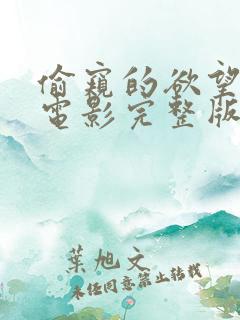 偷窺的欲望
電影完整版
葉旭文
未经同意禁止转载